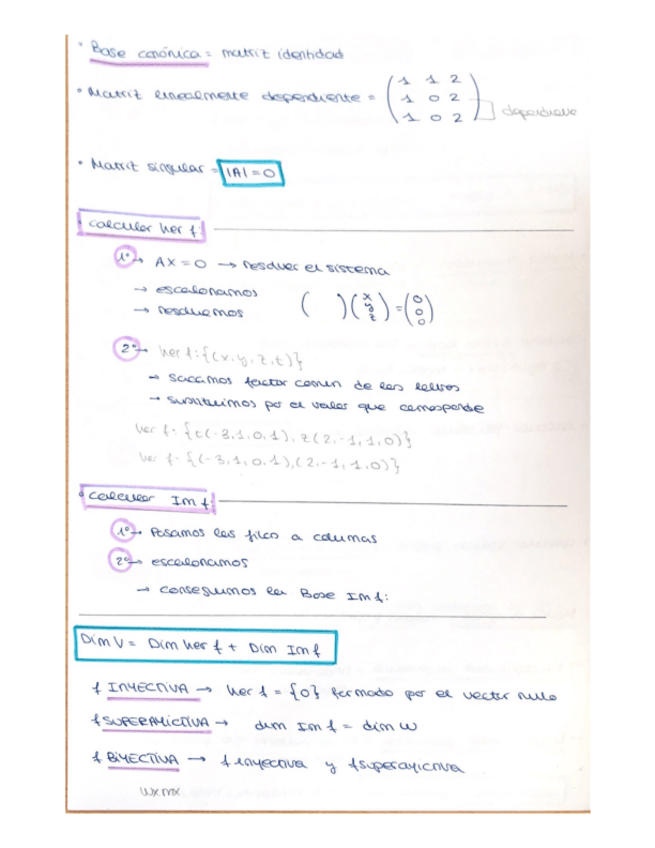 · Base canónica = matriz identidad
· Matriz linealmente dependiente = (1 1 2
1 0 2
1 0 2) dependiente
· Matriz singular = |A| = 0
· Calcular ker f:
1º → AX = 0 → resolver el sistema
→ escalonamos
→ resolvemos ( ) (x y z) = (0 0 0)
2º → ker f: {(x, y, z, t)}
→ sacamos factor comun de las letras
→ sustituimos por el valor que corresponde
ker f: {t(-3, 1, 0, 1), z(2, -1, 1, 0)}
ker f: {(-3, 1, 0, 1), (2, -1, 1, 0)}
· calcular Im f:
1º → Pasamos las filas a columnas
2º → escalonamos
→ conseguimos la Base Im f:
Dim V = Dim ker f + Dim Im f
f INYECTIVA → ker f = {0} formado por el vector nulo
f SUPRAYECTIVA → dim Im f = dim W
f BIYECTIVA → f inyectiva y f suprayectiva